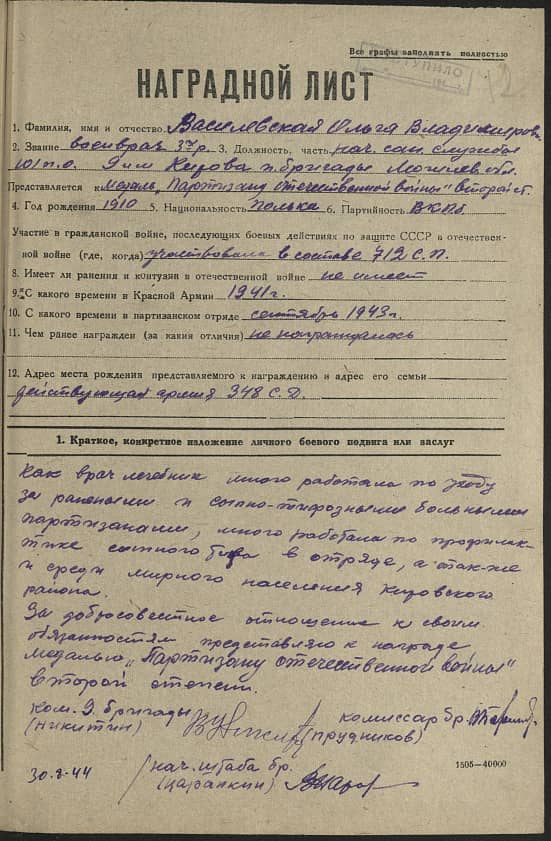 Все графы заполнять полностью
ПОСТУПИЛО
НАГРАДНОЙ ЛИСТ
1. Фамилия, имя и отчество Василевская Ольга Владимировн
2. Звание военврач 3го р. 3. Должность, часть нач. сан. службы
101 п.о. 9 им Кирова п. бригады Могилев. обл.
Представляется к медаль „Партизану отечественной войны" второй ст.
4. Год рождения 1910 5. Национальность полька 6. Партийность ВКПб
Участие в гражданской войне, последующих боевых действиях по защите СССР в отечествен-
ной войне (где, когда) участвовала в составе 712 С.П.
8. Имеет ли ранения и контузии в отечественной войне не имеет
9. С какого времени в Красной Армии 1941 г.
10. С какого времени в партизанском отряде сентябрь 1943 г.
11. Чем ранее награжден (за какия отличия) не награждалась
12. Адрес места рождения представляемого к награждению и адрес его семьи
действующая армия 348 С.Д.
1. Краткое, конкретное изложение личного боевого подвига или заслуг
Как врач лечебник много работала по уходу
за ранеными и сыпно-тифозными больными
партизанами, много работала по профилак-
тике сыпного тифа в отряде, а так-же
и среди мирного населения Кировского
района.
За добросовестное отношение к своим
обязанностям представляю к награде
медалью „Партизану отечественной войны"
второй степени.
ком. 9 бригады комиссар бр.
(Никитин) (Прудников)
30-8-44 нач. штаба бр.
1505—40000